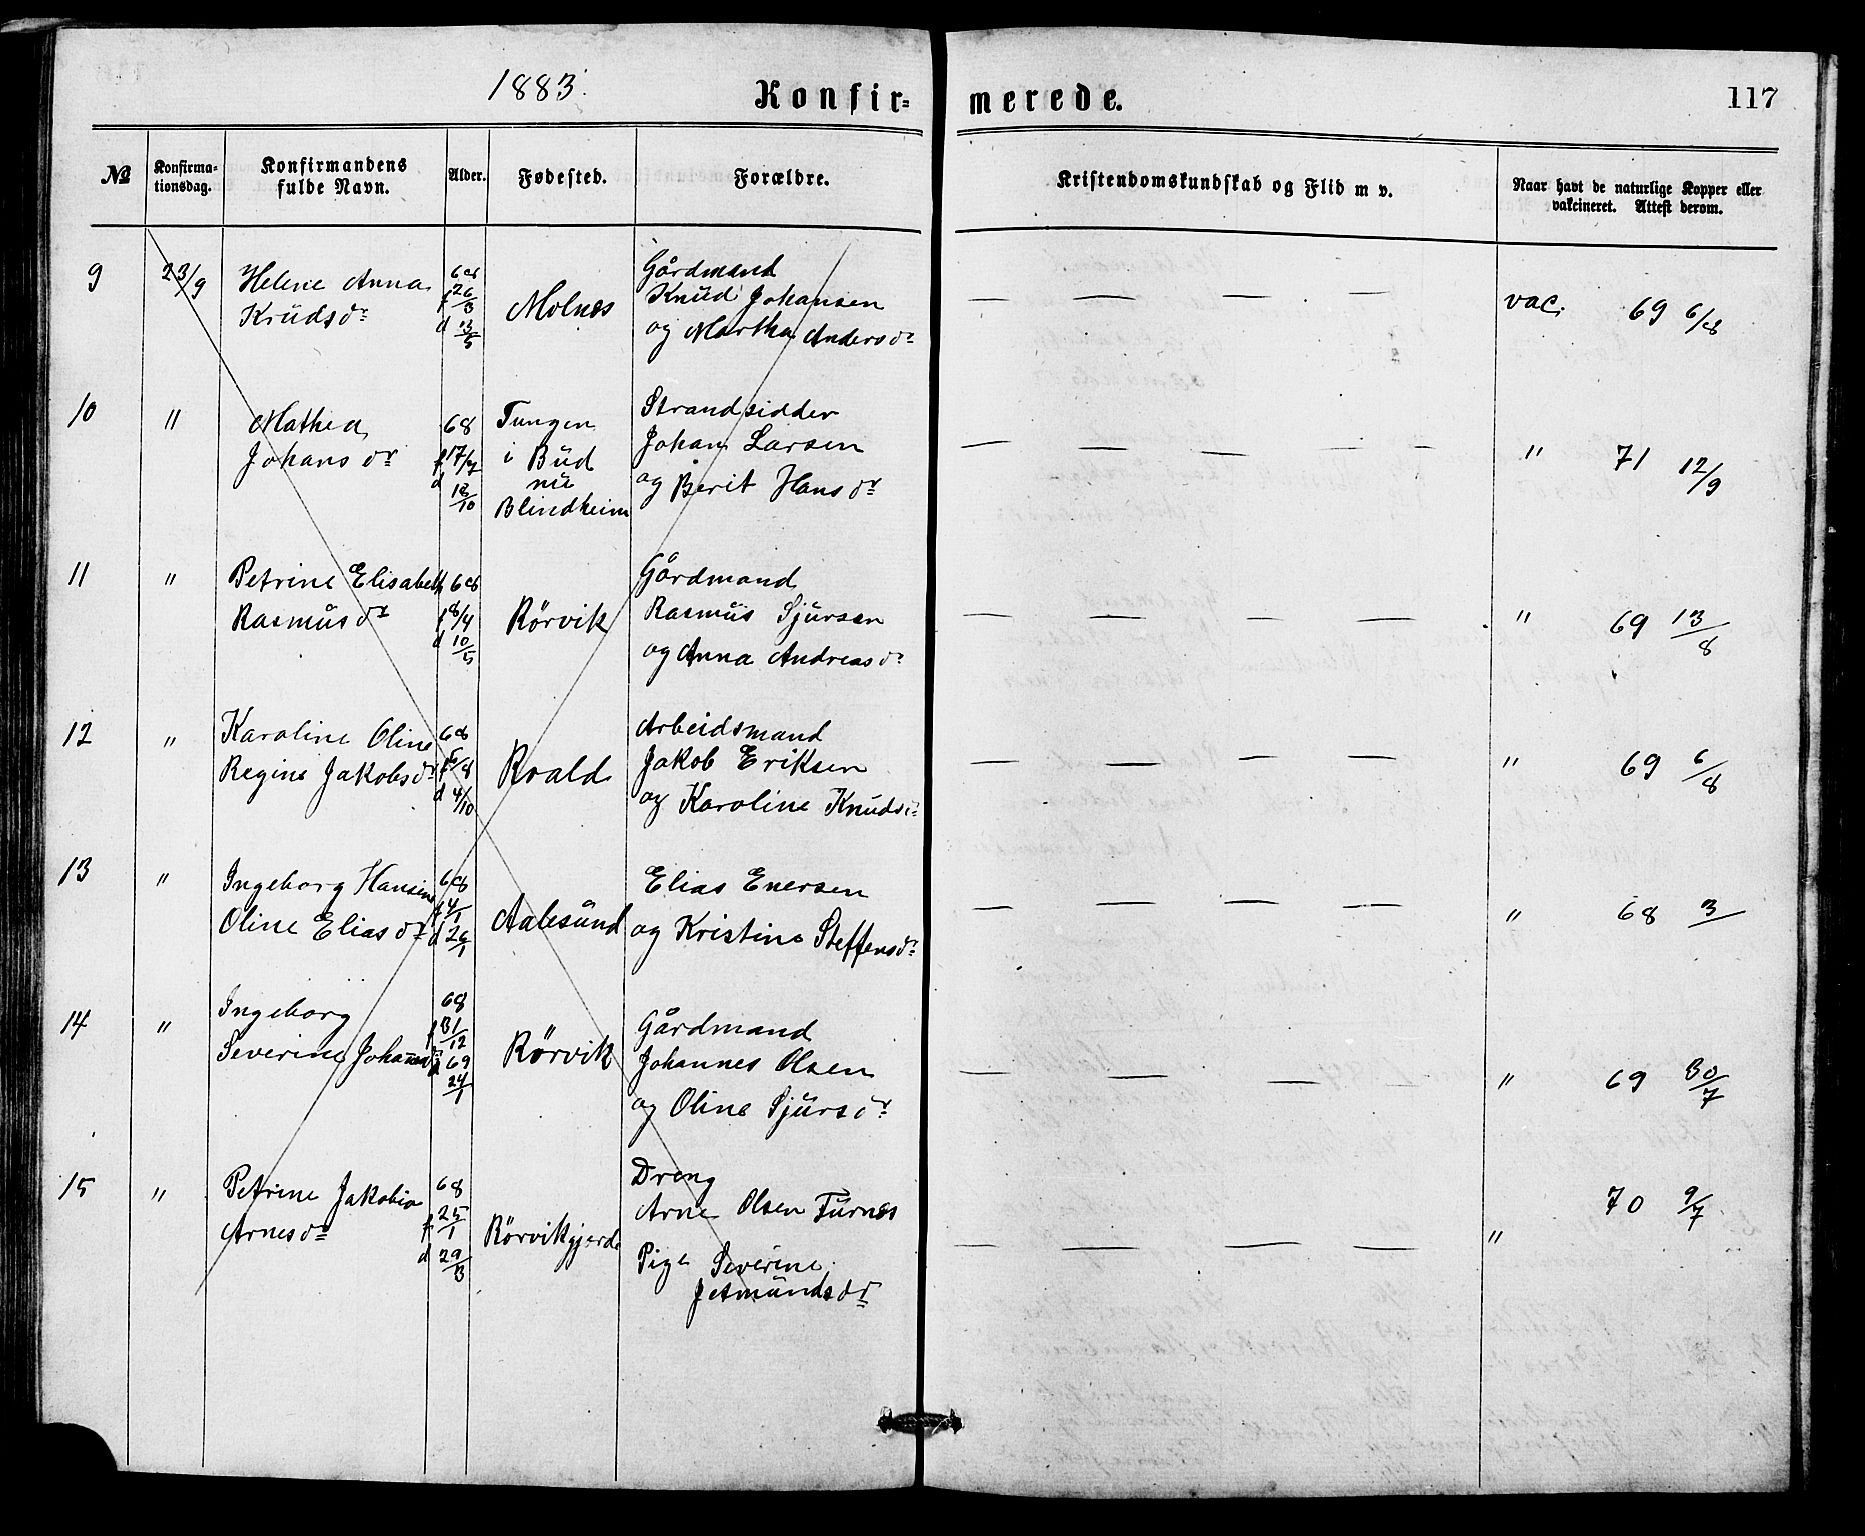 1883.
Konfir=
merede.
117
№
Konfirma-
tionsdag.
Konfirmandens
fulde Navn.
Alder.
Fødested.
Forældre.
Kristendomskundskab og Flid m v.
Naar havt de naturlige Kopper eller
vakcineret. Attest derom.
9 23/9 Helene Anna Knudsdr 68 f 26/3 d 13/5 Molnes
Gårdmand
Knud Johansen
og Martha Andersdr
— — — — vac. 69 6/8
10 " Mathea Johansdr 68 f 17/7 d 18/10
Tungen
i Bud
nu
Blindheim
Strandsidder
Johan Larsen
og Berit Hansdr
— — — — " 71 12/9
11 " Petrine Elisabeth Rasmusdr 68 f 8/4 d 10/5 Rörvik
Gårdmand
Rasmus Sjursen
og Anna Andreasdr
— — — — " 69 13/8
12 " Karoline Oline Regine Jakobsdr 68 f 5/8 d 4/10 Roald
Arbeidsmand
Jakob Eriksen
og Karoline Knudsdr
— — — — " 69 6/8
13 " Ingeborg Hansine Oline Eliasdr 68 f 4/1 d 26/1 Aalesund
Elias Enersen
og Kristine Steffensdr
— — — — " 68 3/
14 " Ingeborg Severine Johannesdr 68 f 31/12 d 69 24/1 Rörvik
Gårdmand
Johannes Olsen
og Oline Sjursdr
— — — — " 69 30/7
15 " Petrine Jakobia Arnesdr 68 f 25/1 d 29/3 Rörvikgjerde
Dreng
Arne Olsen Furnes
Pige Severine
Jetmundsdr
— — — — " 70 9/7